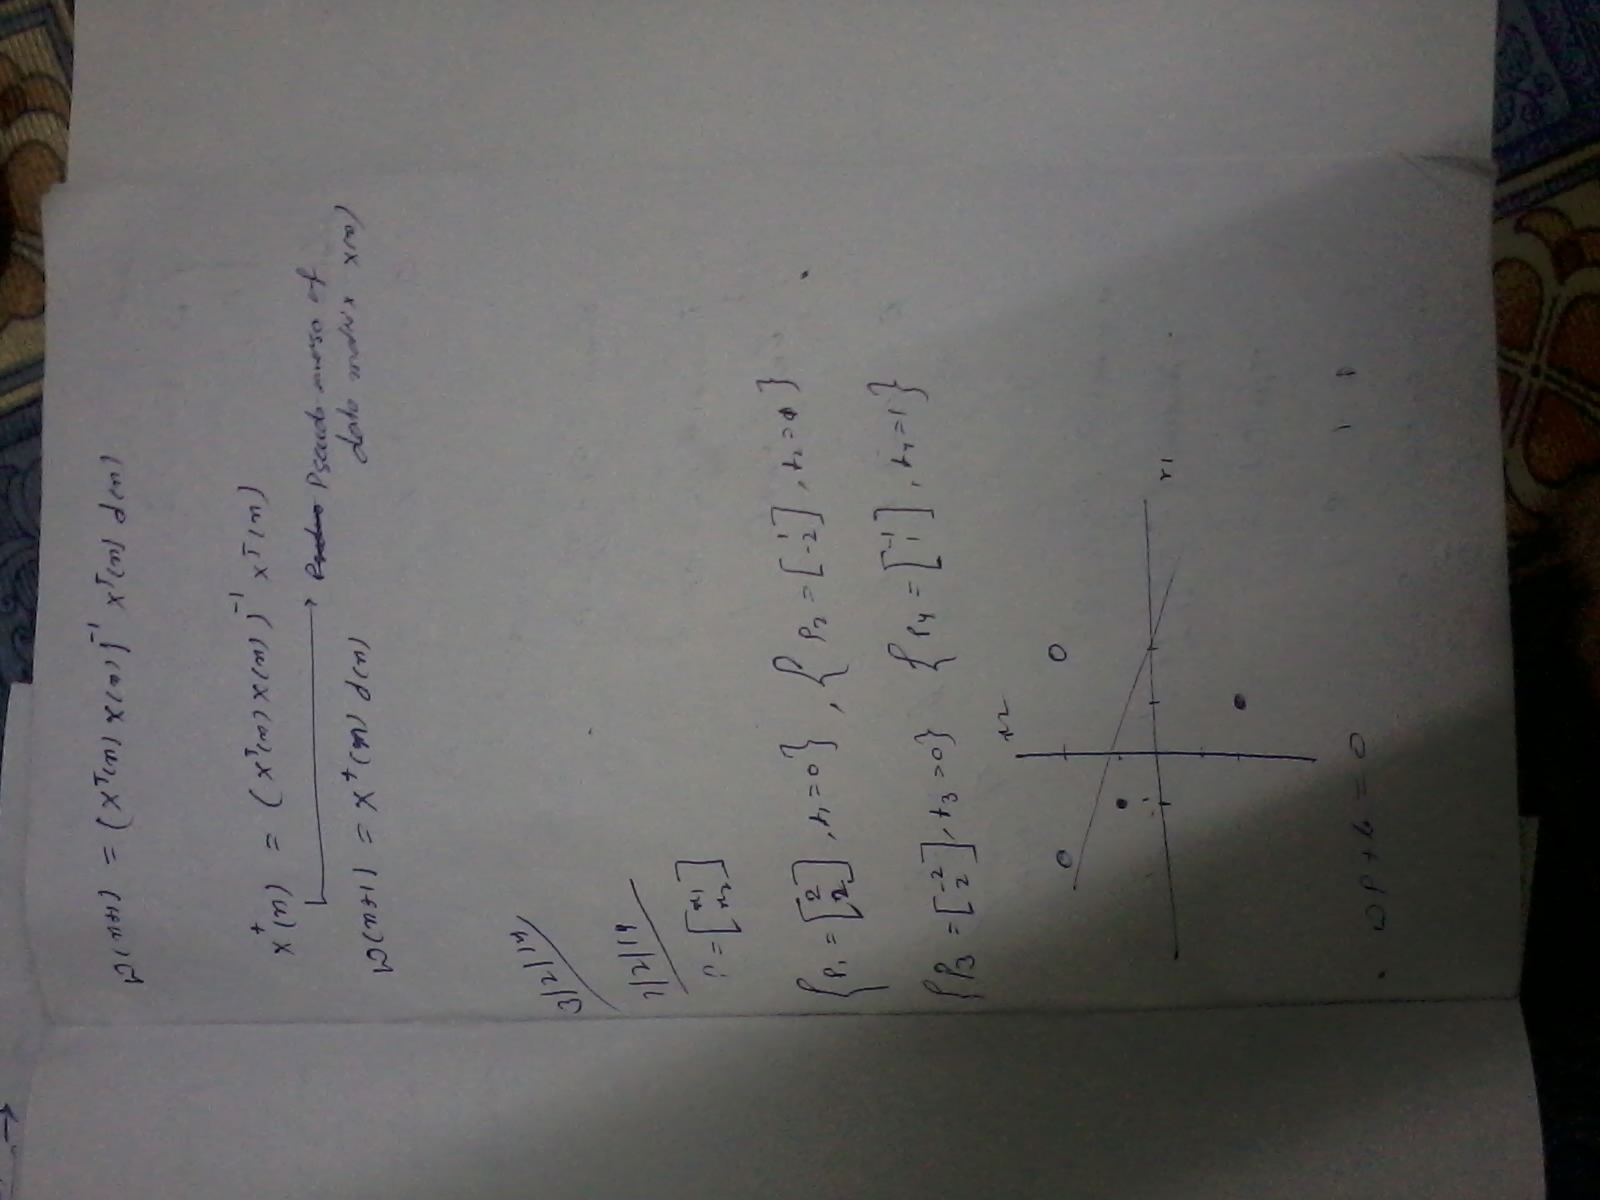 w(n+1) = (x^T(n) x(n))^-1 x^T(n) d(n)
x^+(n) = (x^T(n) x(n))^-1 x^T(n)
Pseudo inverse of
data matrix x(n)
w(n+1) = x^+(n) d(n)
3/2/14
P = [x1 x2]
{P1 = [2 2], t1 = 0}, {P2 = [1 -2], t2 = 1}
{P3 = [-2 2], t3 = 0} {P4 = [-1 1], t4 = 1}
x2
x1
wP + b = 0